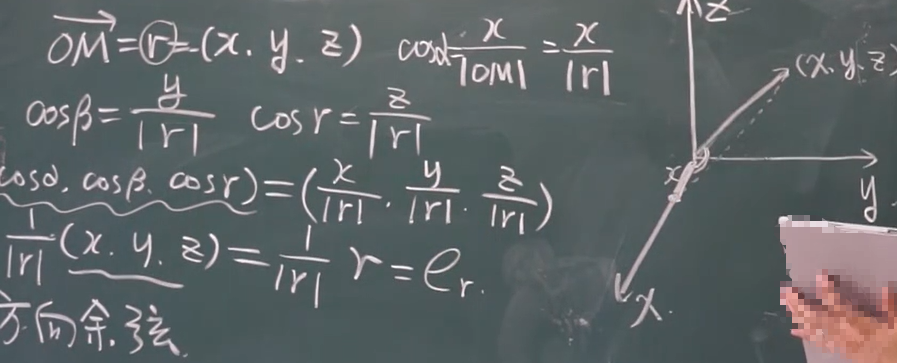 OM = r = (x, y, z)  cosα = x/|OM| = x/|r|
cosβ = y/|r|  cos r = z/|r|
cosα, cosβ, cos r) = (x/|r|, y/|r|, z/|r|)
1/|r| (x, y, z) = 1/|r| r = e_r.
方向余弦
z
(x, y, z)
y
x.